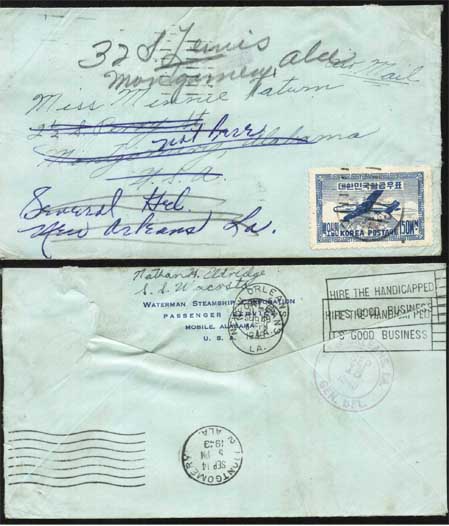 32 S. Lewis
Montgomery, Ala.
Air Mail
Miss Minnie Tatum
Montgomery Alabama
U.S.A.
General Del.
New Orleans La.
대한민국항공우표
KOREA POSTAGE
150
Nathan G. Eldridge
S. S.
WATERMAN STEAMSHIP CORPORATION
PASSENGER SERVICE
MOBILE, ALABAMA
U. S.
NEW ORLEANS
LA.
HIRE THE HANDICAPPED
IT'S GOOD BUSINESS
HIRE THE HANDICAPPED
IT'S GOOD BUSINESS
GEN. DEL.
MONTGOMERY
2 ALA.
SEP 14
5 PM